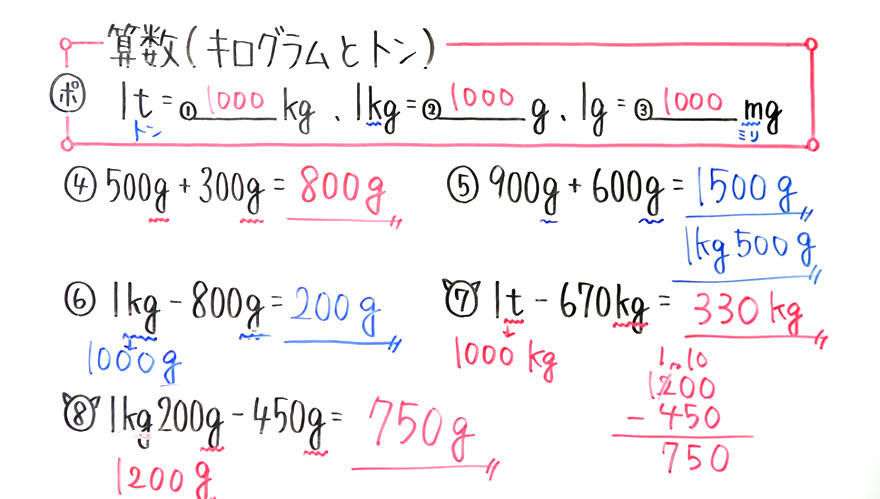 算数(キログラムとトン)
ポ 1t=①1000kg、1kg=②1000g、1g=③1000mg
トン ミリ
④500g+300g=800g ⑤900g+600g=1500g
1kg500g
⑥1kg-800g=200g ⑦1t-670kg=330kg
1000g 1000kg
⑧1kg200g-450g=750g
1200g
1200
-450
750